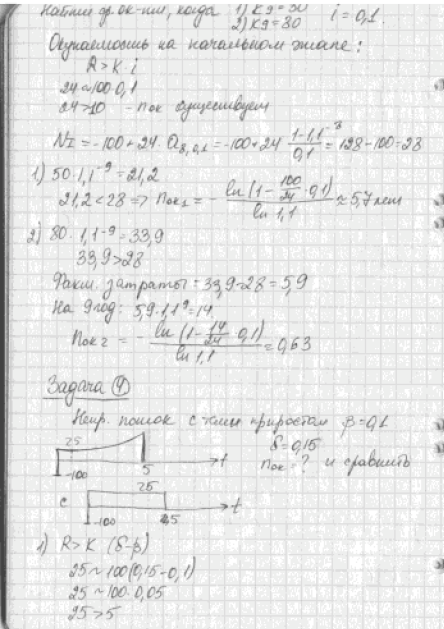 Найти ср ок-ти, когда 1) K9=50 i=0,1
2) K9=80
Окупаемость на начальном этапе:
R>K i
24~100·0,1
24>10 - Пок существует
N₁=-100+24·a₈,₀,₁=-100+24 (1-1,1⁻⁸)/0,1=128-100=28
1) 50·1,1⁻⁹=21,2
21,2<28 => Пок₁ = - ln(1-100/24·0,1)/ln 1,1 ≈5,7 лет
2) 80·1,1⁻⁹=33,9
33,9>28
Факт. затраты=33,9-28=5,9
На 9 год: 5,9·1,1⁹=14
Пок₂ = - ln(1-14/24·0,1)/ln 1,1=0,63
Задача ④
Непр. поток с темп приростом β=0,1
25 δ=0,15
-100 5 t Пок=? и сравнить
с 25
-100 5 t
1) R>K (δ-β)
25~100(0,15-0,1)
25~100·0,05
25>5